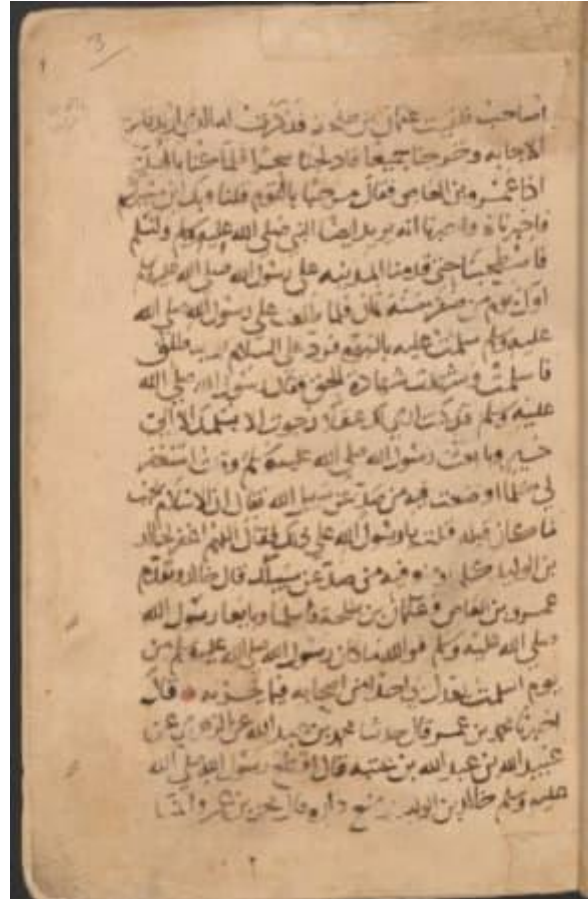 3
اصاحب فلقيت عثمان بن طلحة فذكرت له الذي اريد فاسرع
الاجابه وخرجنا جميعا فادلجنا سحرا فلما كنا بالهدة
اذا عمرو بن العاص فقال مرحبا بالقوم فلنا وبك اين مسيركم
فاخبرناه واخبرنا انه يريد ايضا النبي صلى الله عليه وسلم ليسلم
فاصطحبنا حتى قدمنا المدينه على رسول الله صلى الله عليه وسلم
اول يوم من صفر سنة ثمان فلما طلعت على رسول الله صلى الله
عليه وسلم سلمت عليه بالنبوة فرد علي السلام بوجه طلق
فاسلمت وشهدت شهادة الحق وقال رسول الله صلى الله
عليه وسلم قد كنت ارى لك عقلا رجوت الا يسلمك الا الى
خير وبايعت رسول الله صلى الله عليه وسلم وقلت استغفر
لي كلما اوضعت فيه من صد عن سبيل الله فقال ان الاسلام يجب
ما كان قبله قلت يا رسول الله على ذلك فقال اللهم اغفر لخالد
بن الوليد كلما اوضع فيه من صد عن سبيلك قال خالد وتقدم
عمرو بن العاص وعثمان بن طلحة فاسلما وبايعا رسول الله
صلى الله عليه وسلم فوالله ما كان رسول الله صلى الله عليه وسلم من
يوم اسلمت يعدل بي احدا من اصحابه فيما يحزبه قال
اخبرنا محمد بن عمر قال حدثنا محمد بن عبد الله عن الزهري عن
عبيد الله بن عبد الله بن عتبه قال اقطع رسول الله صلى الله
عليه وسلم خالد بن الوليد موضع داره قال محمد بن عمر وانما